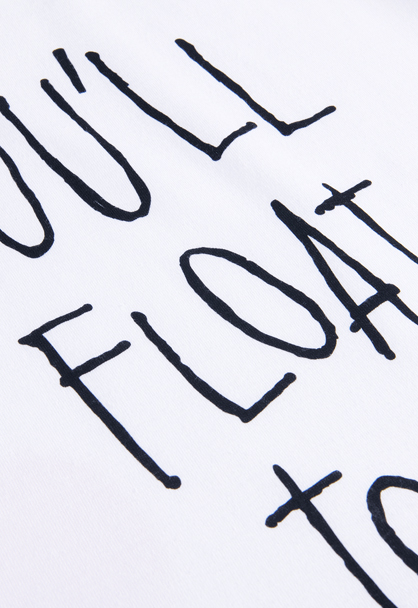 OU'LL
FLOAT
TO